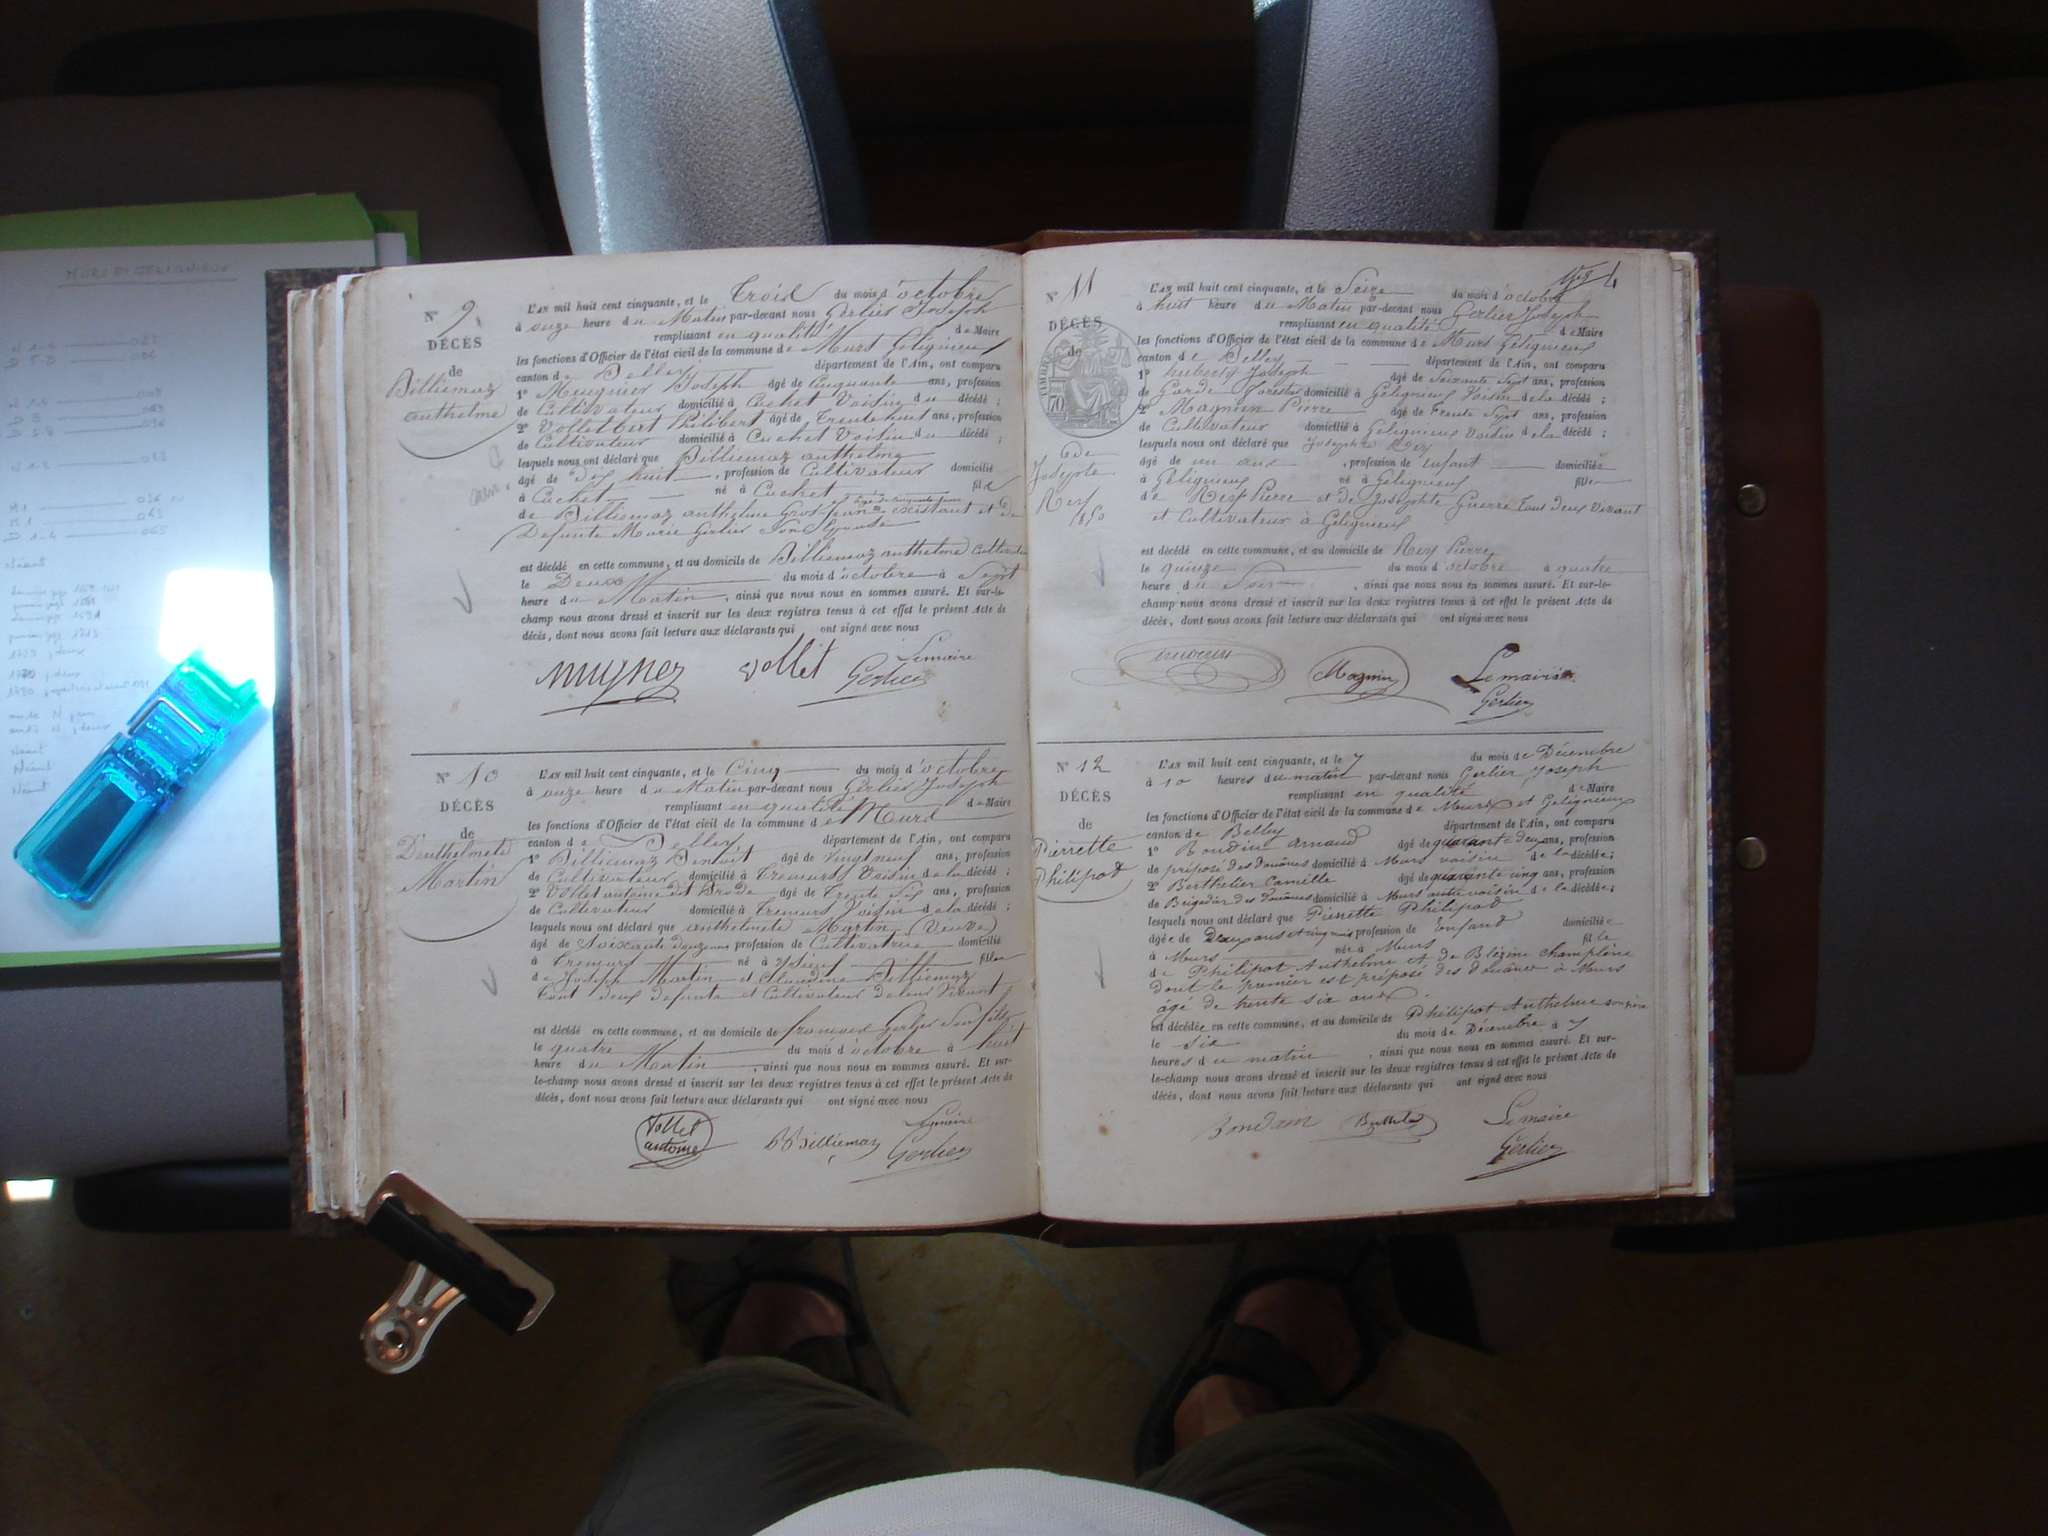 MURS ET GELIGNIEUX
N° 9
DÉCÈS
de
Billiemaz
anthelme
L'AN mil huit cent cinquante, et le Trois du mois d'octobre
à onze heure du Matin par-devant nous Gerlier Joseph
remplissant en qualité de Maire
les fonctions d'Officier de l'état civil de la commune de Murs Gelignieux
canton de Belley département de l'Ain, ont comparu
1° Meugnier Joseph âgé de Cinquante ans, profession
de Cultivateur domicilié à Cuchet Voisin du décédé ;
2° Vollet Philibert âgé de Trente huit ans, profession
de Cultivateur domicilié à Cuchet Voisin du décédé ;
lesquels nous ont déclaré que Billiemaz anthelme
âgé de Dix huit , profession de Cultivateur domicilié
à Cuchet né à Cuchet fils
de Billiemaz anthelme existant et de
Defunte Marie Gerlier Son Epouse
est décédé en cette commune, et au domicile de Billiemaz anthelme Cultivateur
le Deux du mois d'octobre à Sept
heure du Matin , ainsi que nous nous en sommes assuré. Et sur-le-
champ nous avons dressé et inscrit sur les deux registres tenus à cet effet le présent Acte de
décès, dont nous avons fait lecture aux déclarants qui ont signé avec nous
mugner vollet Lemaire
Gerlier
N° 10
DÉCÈS
de
D'anthelmete
Martin
L'AN mil huit cent cinquante, et le Cinq du mois d'octobre
à onze heure du Matin par-devant nous Gerlier Joseph
remplissant en qualité de Maire
les fonctions d'Officier de l'état civil de la commune de Murs
canton de Belley département de l'Ain, ont comparu
1° Billiemaz Benoit âgé de Vingt neuf ans, profession
de Cultivateur domicilié à Cremurs Voisin de la décédé ;
2° Vollet antoine dit âgé de Trente Six ans, profession
de Cultivateur domicilié à Cremurs Voisin de la décédé ;
lesquels nous ont déclaré que anthelmete Martin (Veuve)
âgé de Soixante Douze ans profession de Cultivatrice domicilié
à Cremurs né à fille
de Joseph Martin et Claudine Billiemaz
Tout deux defunts et Cultivateur de leur Vivant
est décédé en cette commune, et au domicile de françois Gerlier Son fils
le quatre du mois d'octobre à huit
heure du Matin , ainsi que nous nous en sommes assuré. Et sur-
le-champ nous avons dressé et inscrit sur les deux registres tenus à cet effet le présent Acte de
décès, dont nous avons fait lecture aux déclarants qui ont signé avec nous
Vollet
antoine
Billiemaz
Lemaire
Gerlier
N° 11
DÉCÈS
de
TIMBRE
70
de
Josephte
Rey
1850
L'AN mil huit cent cinquante, et le Seize du mois d'octobre
à huit heure du Matin par-devant nous Gerlier Joseph
remplissant en qualité de Maire
les fonctions d'Officier de l'état civil de la commune de Murs Gelignieux
canton de Belley département de l'Ain, ont comparu
1° Joseph âgé de Soixante Sept ans, profession
de Garde forestier domicilié à Gelignieux Voisin de la décédé ;
2° Magnin Pierre âgé de Trente Sept ans, profession
de Cultivateur domicilié à Gelignieux Voisin de la décédé ;
lesquels nous ont déclaré que Josephte Rey
âgé de un ans , profession de enfant domiciliée
à Gelignieux né à Gelignieux fille
de Rey Pierre et de Josephte Guerre Tout deux Vivant
et Cultivateur à Gelignieux
est décédé en cette commune, et au domicile de Rey Pierre
le quinze du mois d'octobre à quatre
heure du Soir , ainsi que nous nous en sommes assuré. Et sur-le-
champ nous avons dressé et inscrit sur les deux registres tenus à cet effet le présent Acte de
décès, dont nous avons fait lecture aux déclarants qui ont signé avec nous
Magnin
Lemaire
Gerlier
N° 12
DÉCÈS
de
Pierrette
Philipot
L'AN mil huit cent cinquante, et le 7 du mois de Décembre
à 10 heures du matin par-devant nous Gerlier Joseph
remplissant en qualité de Maire
les fonctions d'Officier de l'état civil de la commune de Murs et Gelignieux
canton de Belley département de l'Ain, ont comparu
1° Boudin Arnaud âgé de quarante deux ans, profession
de préposé des douânes domicilié à Murs voisin de la décédée ;
2° Berthelier Camille âgé de quarante cinq ans, profession
de Brigadier des douânes domicilié à Murs autre voisin de la décédée ;
lesquels nous ont déclaré que Pierrette Philipot
âgée de Deux ans et cinq mois profession de enfant domiciliée
à Murs née à Murs fille
de Philipot Anthelme et de Blézine Champlène
dont le premier est préposé des douânes à Murs
âgé de trente six ans
est décédée en cette commune, et au domicile de Philipot Anthelme son père
le six du mois de Décembre à 7
heures du matin , ainsi que nous nous en sommes assuré. Et sur-
le-champ nous avons dressé et inscrit sur les deux registres tenus à cet effet le présent Acte de
décès, dont nous avons fait lecture aux déclarants qui ont signé avec nous
Boudin
Lemaire
Gerlier